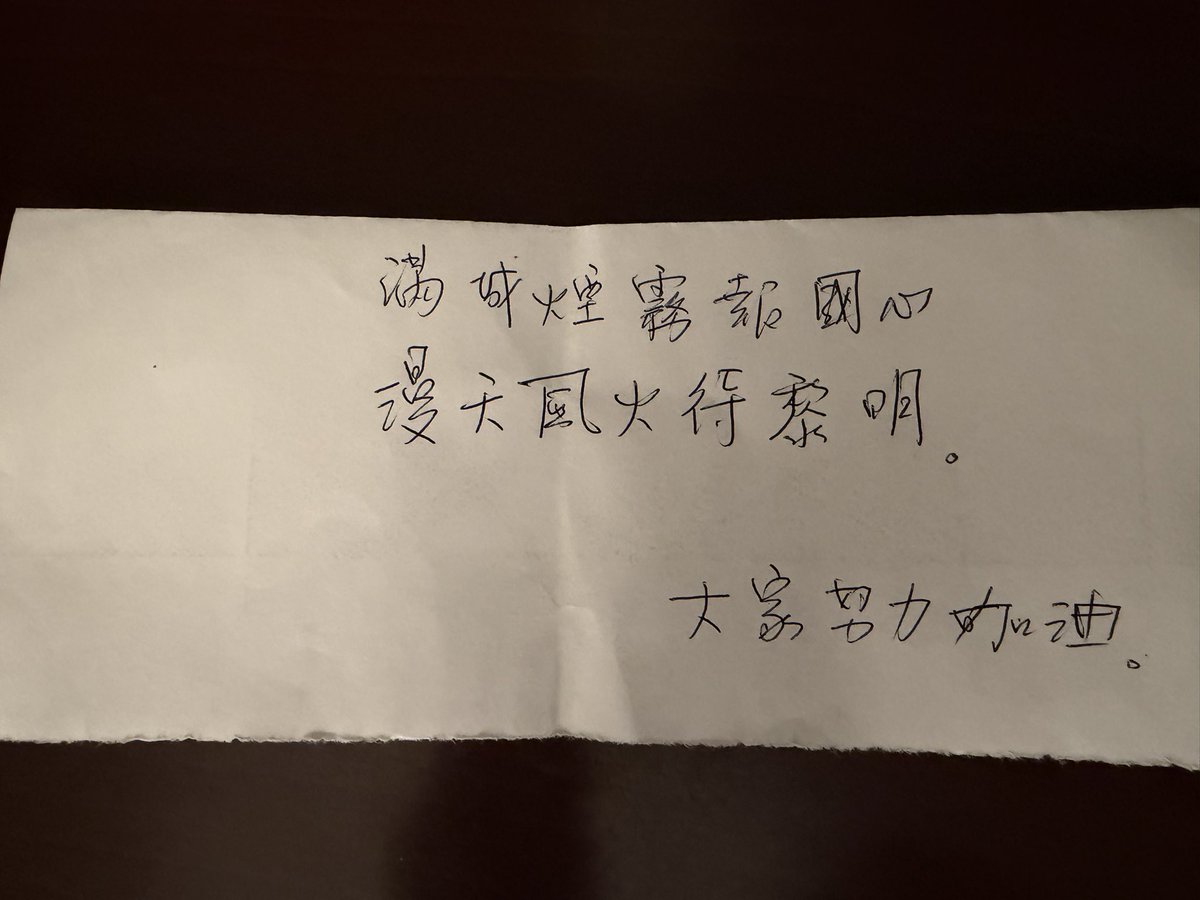 滿城煙霧報國心
漫天風火待黎明。
大家努力加油。